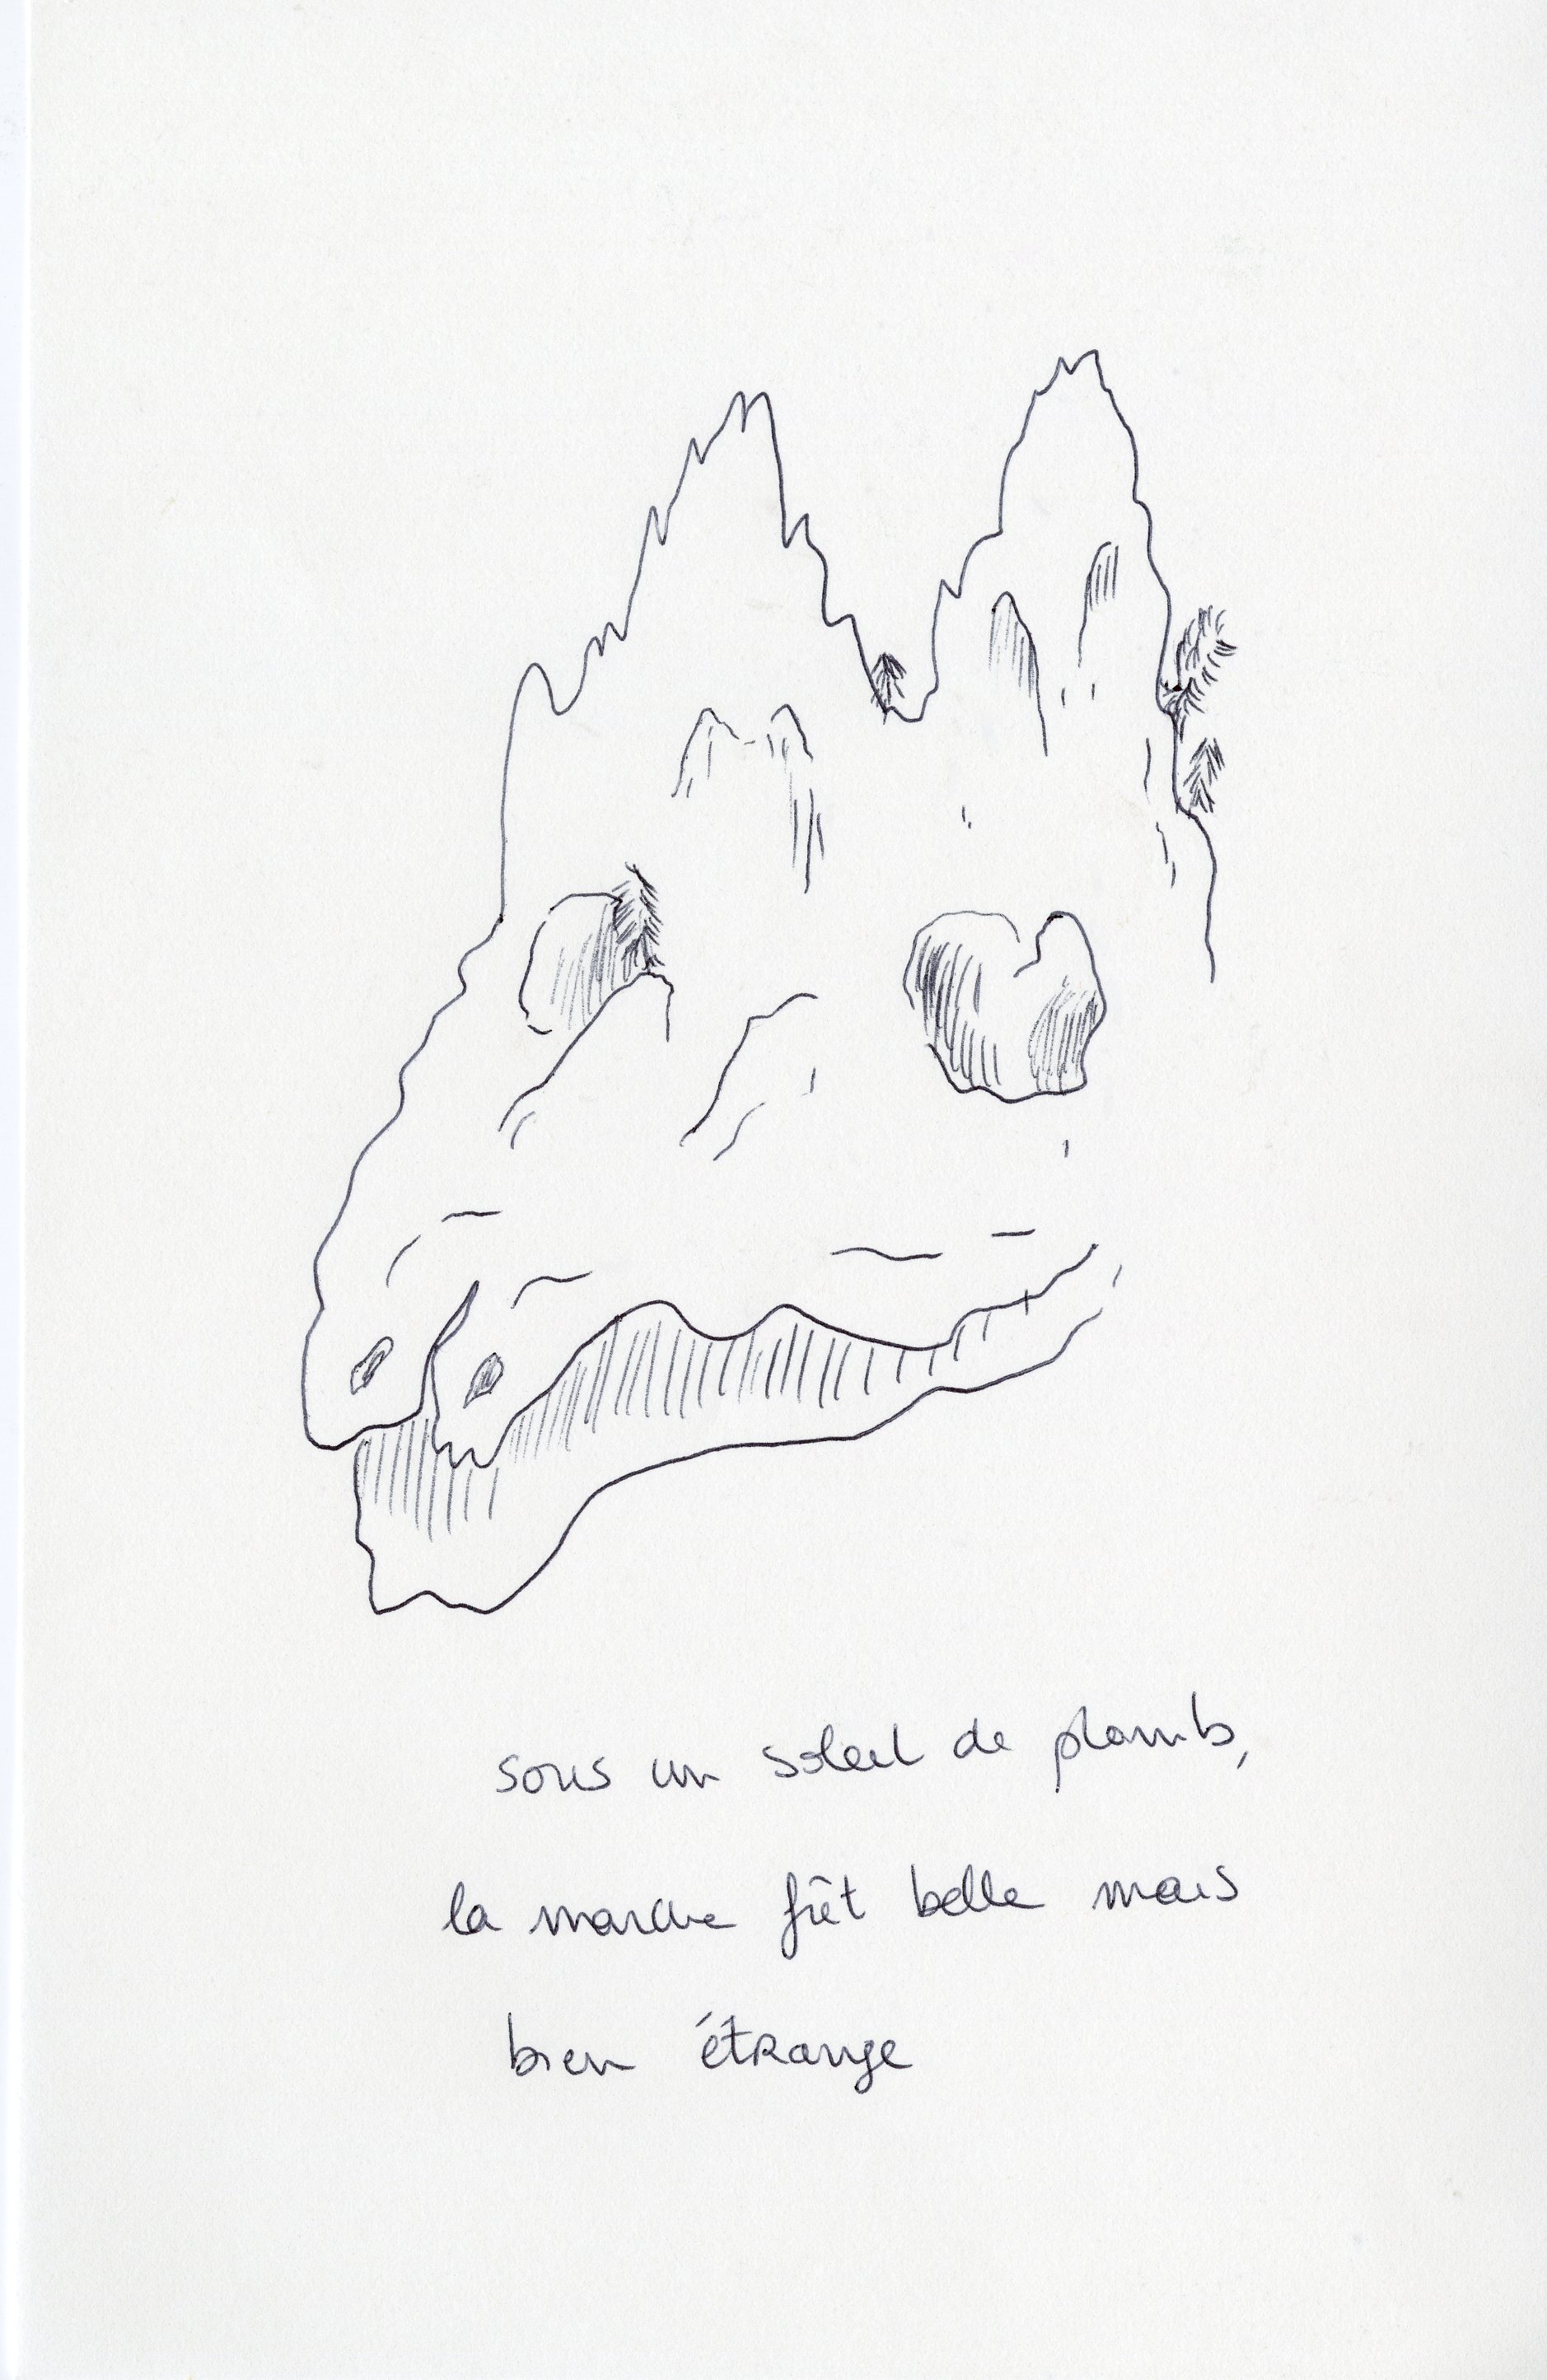 sous un soleil de plomb,
la marche fût belle mais
bien étrange